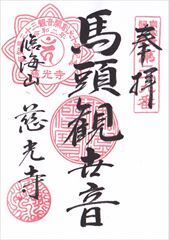 奉拝
馬頭観世音
臨海山
慈光寺